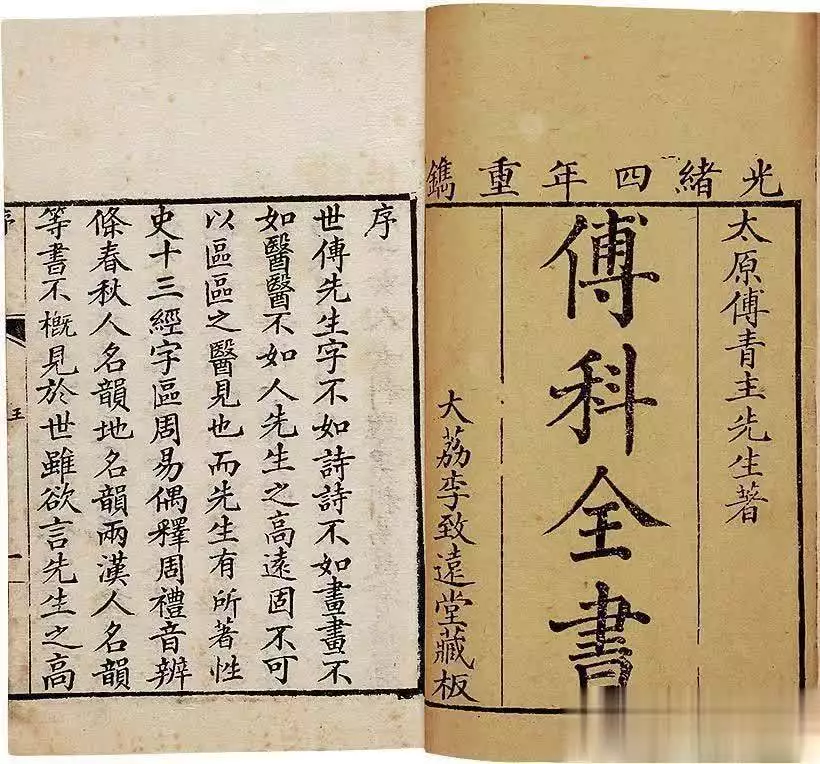 光緒四年重鐫
太原傅青主先生著
傅科全書
大荔李致遠堂藏板
序
世傅先生字不如詩詩不如畫畫不
如醫醫不如人先生之高遠固不可
以區區之醫見也而先生有所著性
史十三經字區周易偶釋周禮音辨
條春秋人名韻地名韻兩漢人名韻
等書不概見於世雖欲言先生之高
序
王
一